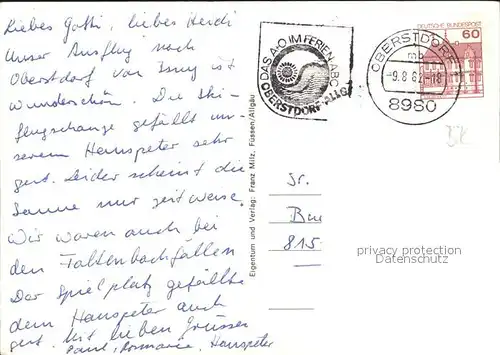 Liebes Gotti, liebes Heidi
Unser Ausflug nach
Oberstdorf von Isny ist
wunderschön. Die Ski-
flugschanze gefällt un-
serem Hanspeter sehr
gut. Leider scheint die
Sonne nur zeitweise.
Wir waren auch bei
den Faltenbachfällen
Der Spielplatz gefällt
dem Hanspeter auch
gut. Mit lieben Grüssen
Paul, Rosmarie, Hanspeter
Eigentum und Verlag: Franz Milz, Füssen/Allgäu
DAS A+O IM FERIEN-ABC
OBERSTDORF/ALLG
OBERSTDORF
mb
-9.8.82-18
8980
DEUTSCHE BUNDESPOST
60
815
privacy protection
Datenschutz